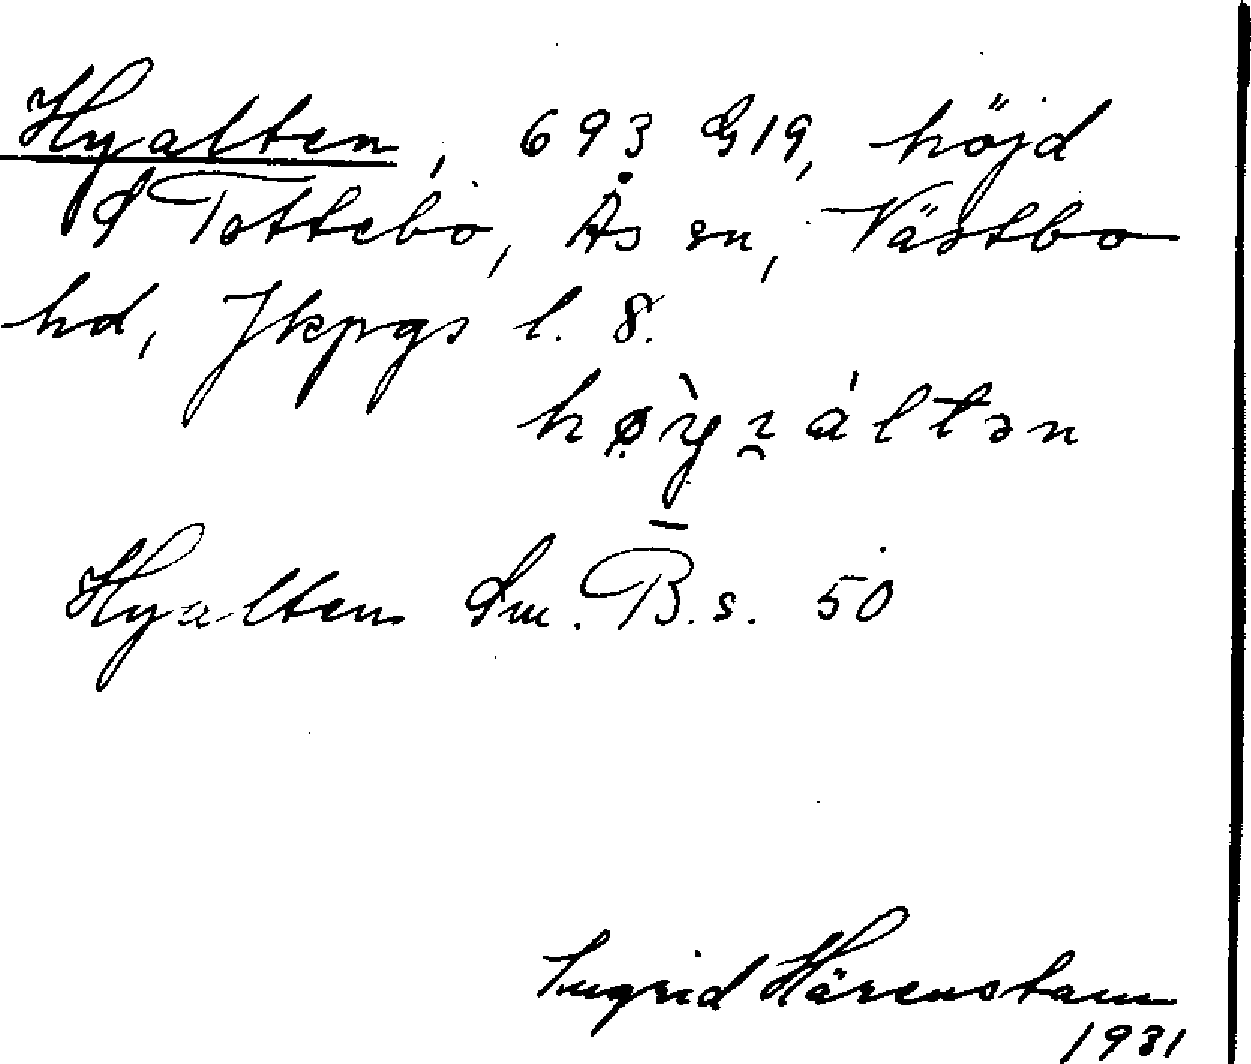 Hyalten, 693 G19, höjd
S Tottebo, Ås sn, Västbo
hd, Jkpgs l. 8.
hø̣̀yı̯áltən
Hyalten Sm. B. s. 50
Ingrid Härenstam
1931